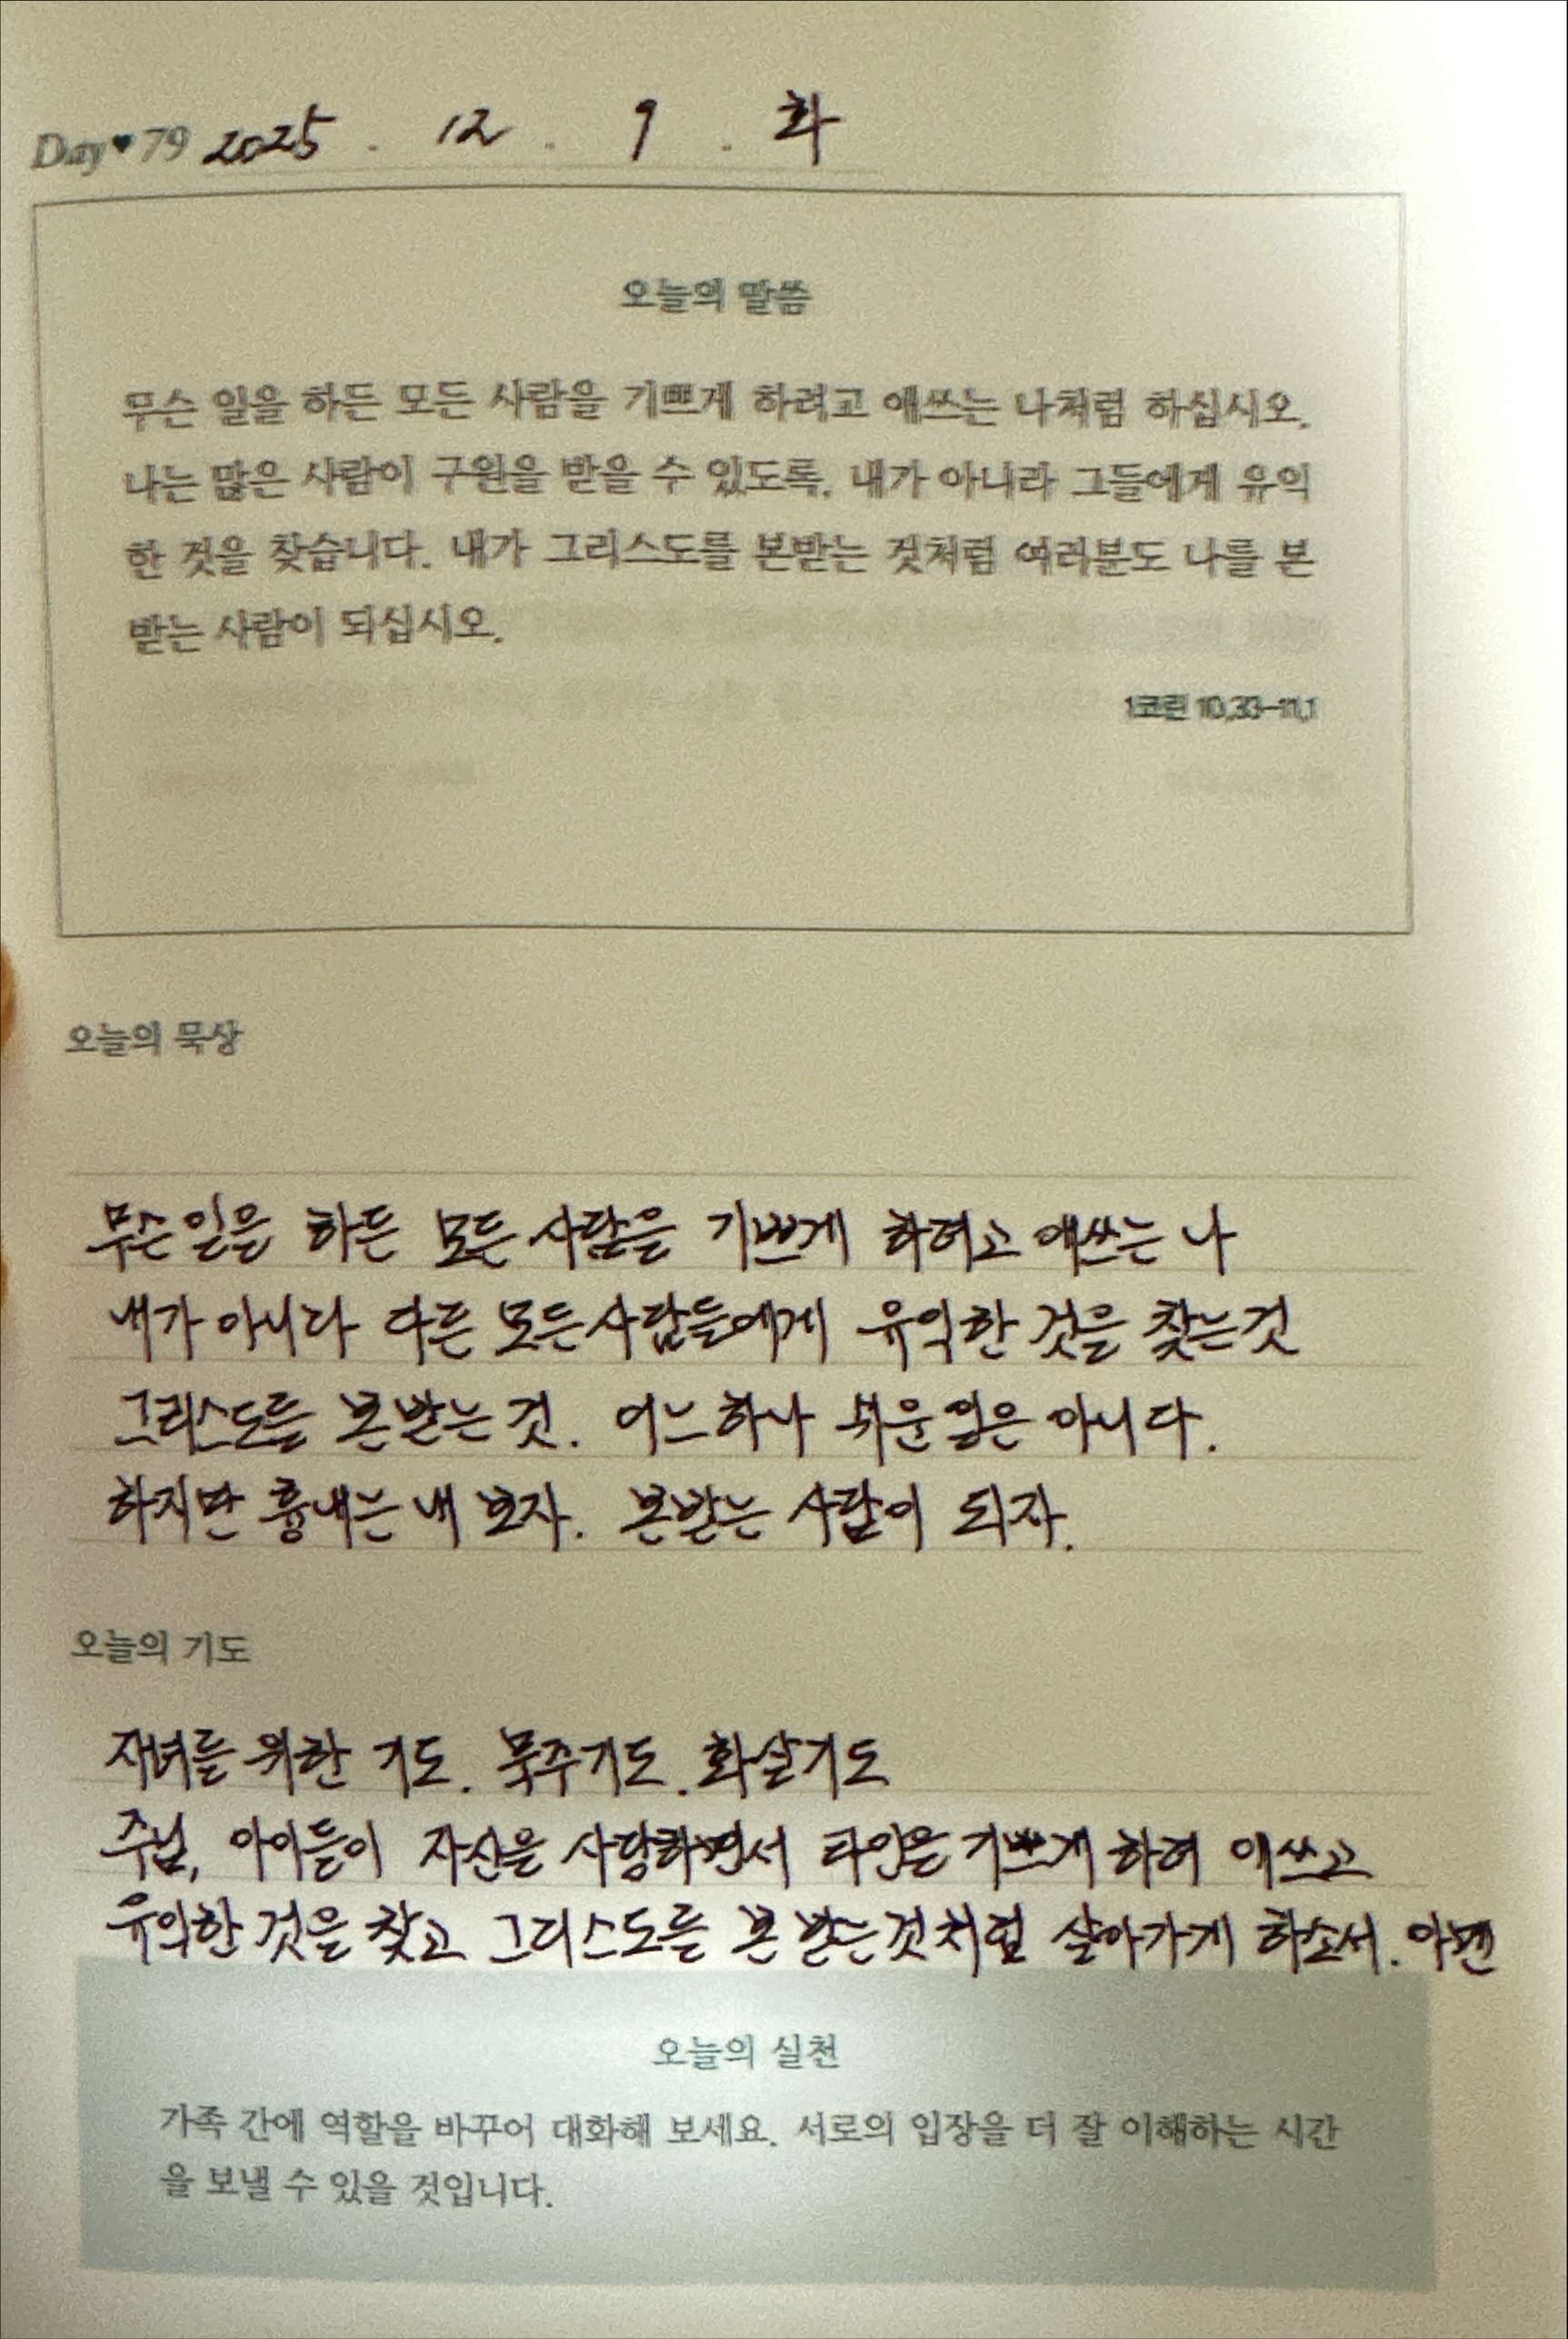 Day♥79 2025 . 12 . 9 . 화
오늘의 말씀
무슨 일을 하든 모든 사람을 기쁘게 하려고 애쓰는 나처럼 하십시오.
나는 많은 사람이 구원을 받을 수 있도록, 내가 아니라 그들에게 유익
한 것을 찾습니다. 내가 그리스도를 본받는 것처럼 여러분도 나를 본
받는 사람이 되십시오.
1코린 10,33-11,1
오늘의 묵상
무슨 일을 하든 모든 사람을 기쁘게 하려고 애쓰는 나
내가 아니라 다른 모든 사람들에게 유익한 것을 찾는 것
그리스도를 본받는 것. 어느 하나 쉬운 일은 아니다.
하지만 흉내는 내 보자. 본받는 사람이 되자.
오늘의 기도
자녀를 위한 기도. 묵주기도. 화살기도
주님, 아이들이 자신을 사랑하면서 타인을 기쁘게 하려 애쓰고
유익한 것을 찾고 그리스도를 본 받는 것처럼 살아가게 하소서. 아멘
오늘의 실천
가족 간에 역할을 바꾸어 대화해 보세요. 서로의 입장을 더 잘 이해하는 시간
을 보낼 수 있을 것입니다.